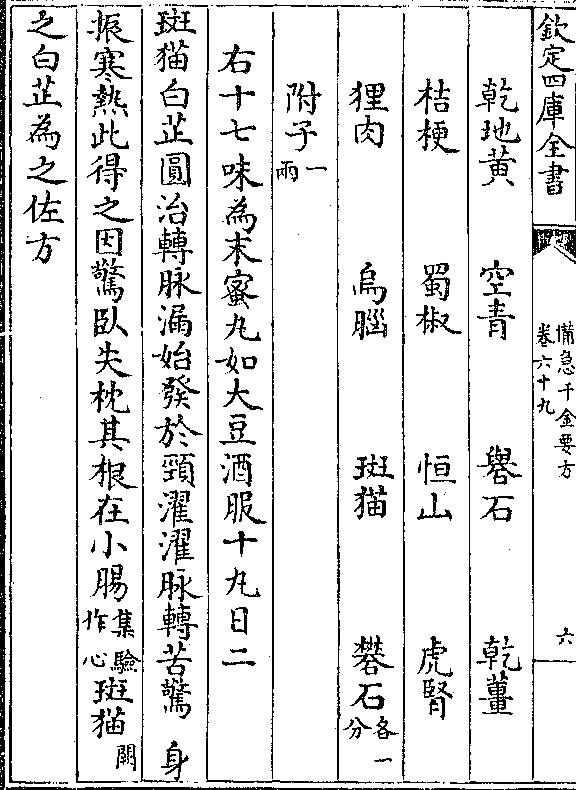 欽定四庫全書
備急千金要方
卷六十九
六
乾地黄 空青 礜石 乾薑
桔梗 蜀椒 恒山 虎腎
狸肉 烏腦 斑猫 礬石各一分
附子一兩
右十七味為末蜜丸如大豆酒服十丸日二
斑猫白芷圓治轉脉漏始發於頸濯濯脉轉苦驚 身
振寒熱此得之因驚臥失枕其根在小腸集驗作心斑猫闕
之白芷為之佐方